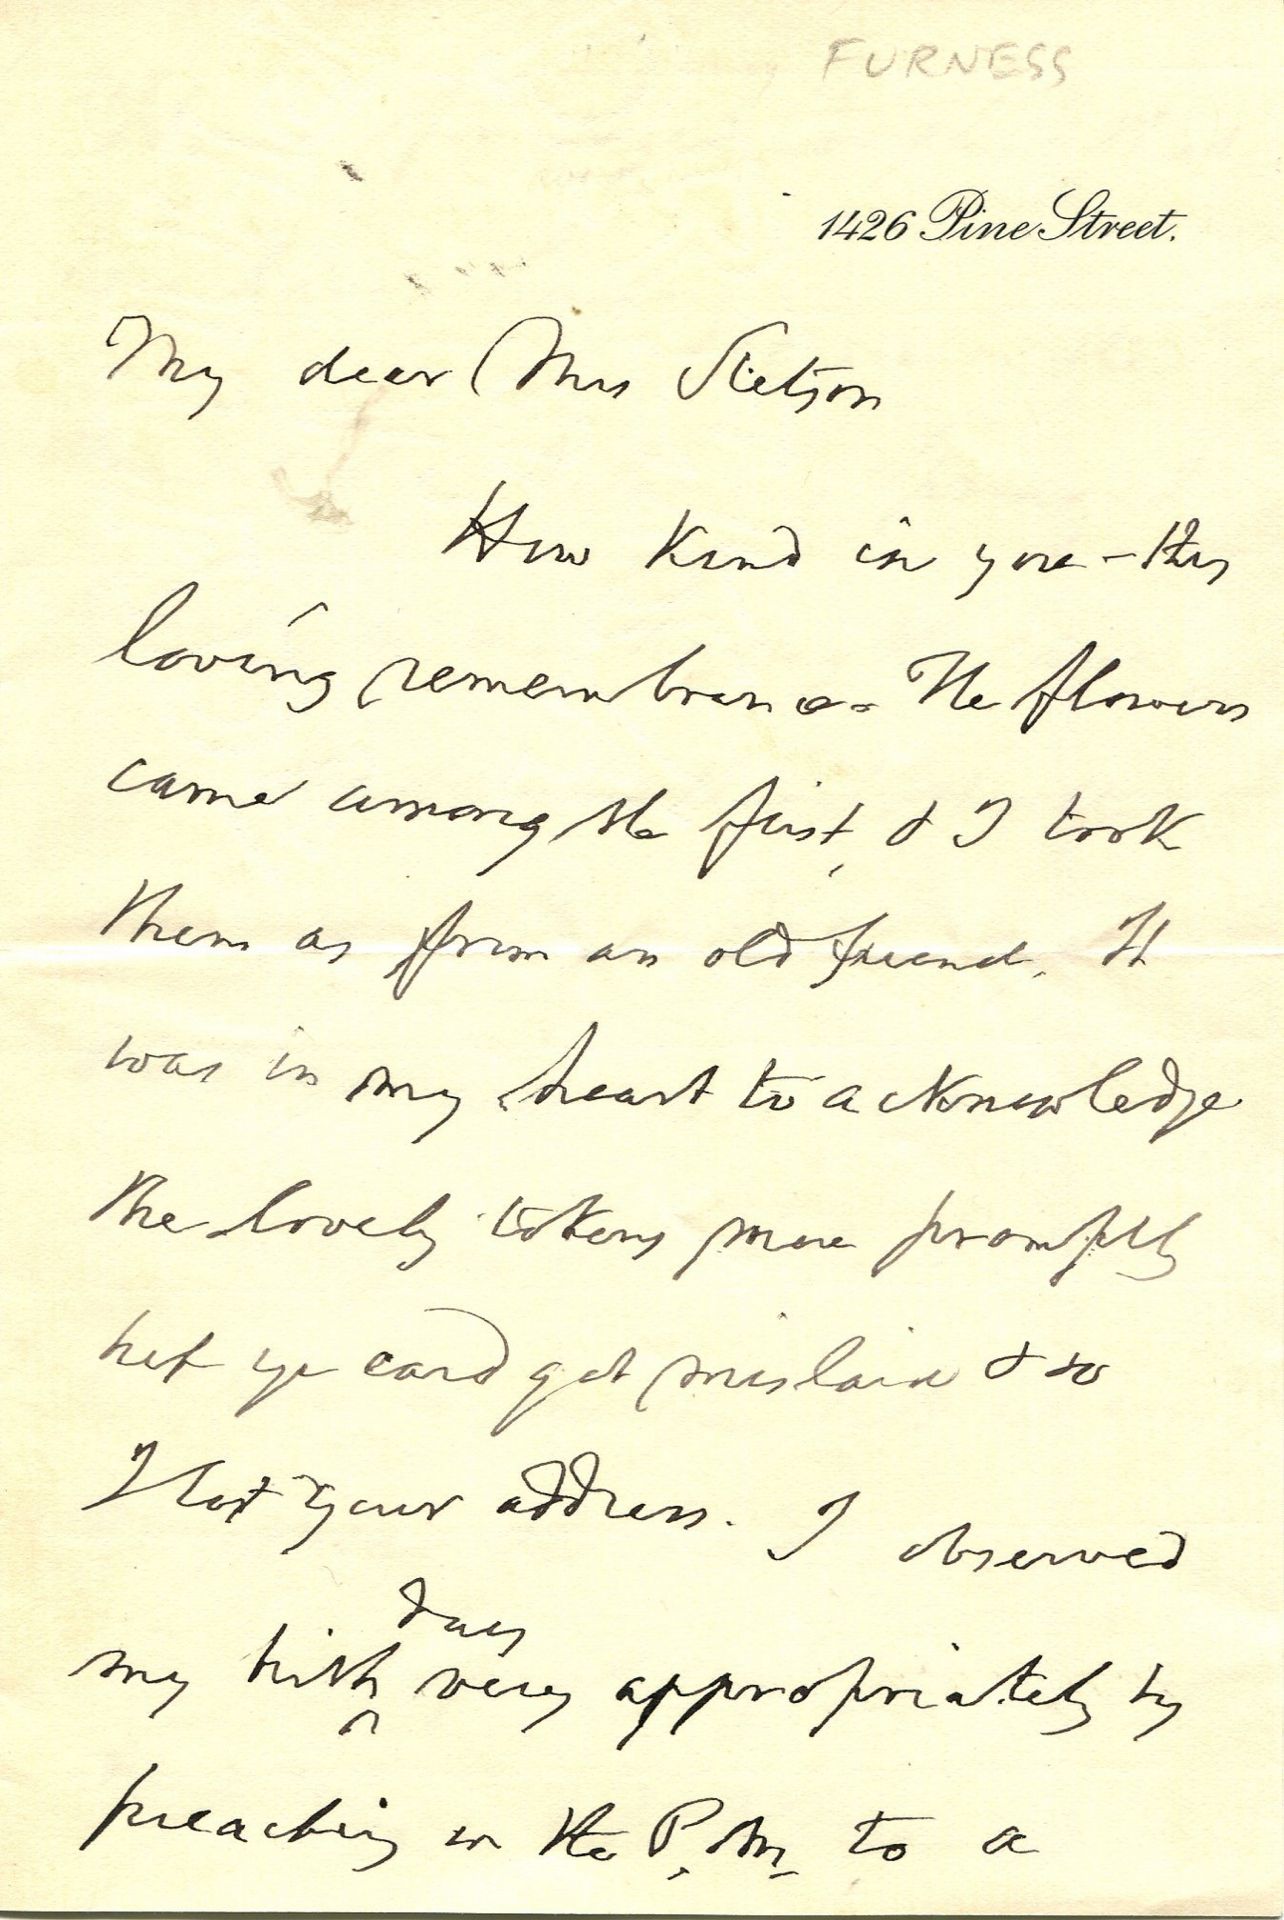 FURNESS
1426 Pine Street.
My dear Mrs Stetson
How kind in you - this
loving remembrance. The flowers
came among the first, & I took
them as from an old friend. It
was in my heart to acknowledge
the lovely tokens more promptly
but ye card got mislaid & so
I lost your address. I observed
day
my birth^ very appropriately by
preaching in the P.M. to a